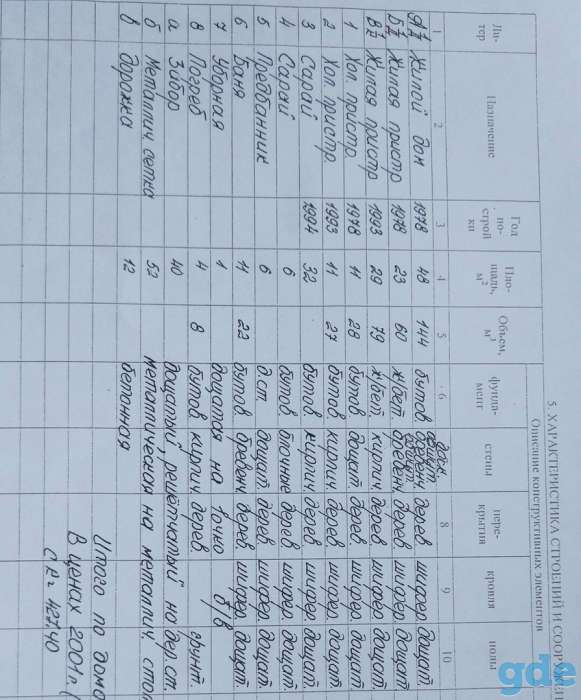 5. ХАРАКТЕРИСТИКА СТРОЕНИЙ И СООРУЖЕН
Ли-тер Назначение Год по-строй ки Пло-щадь, м² Объем, м³ Описание конструктивных элементов
фунда-мент стены пере-крытия кровля полы
1 2 3 4 5 6 8 9 10
Жилой дом 1978 48 144 бутов. дерев шифер дощат.
Жилая пристр 1978 23 60 ж/бет. бревенч. дерев. шифер. дощат
Жилая пристр 1993 29 79 ж/бет. кирпич. дерев. шифер. дощат.
1 Хол. пристр. 1978 11 28 бутов дощат. дерев шифер. дощат.
2 Хол. пристр. 1993 11 27 бутов кирпич. дерев. шифер. дощат.
3 Сарай 1994 32 бутов. кирпич. дерев шифер. дощат.
4 Сарай 6 бутов. блочные дерев шифер. дощат.
5 Предбанник 6 д.ст. дощат. дерев шифер. дощат.
6 Баня 11 22 бутов. бревенч. дерев. шифер. дощат.
7 Уборная 1 дощатая на 1 очко б/в
8 Погреб 4 8 бутов кирпич. дерев. грунт.
а Забор 40 дощатый, решетчатый на дер. ст.
б Металлич сетка 52 металлическая на металлич сто
в Дорожка 12 бетонная
Итого по домо
В ценах 2001 г. (
gde